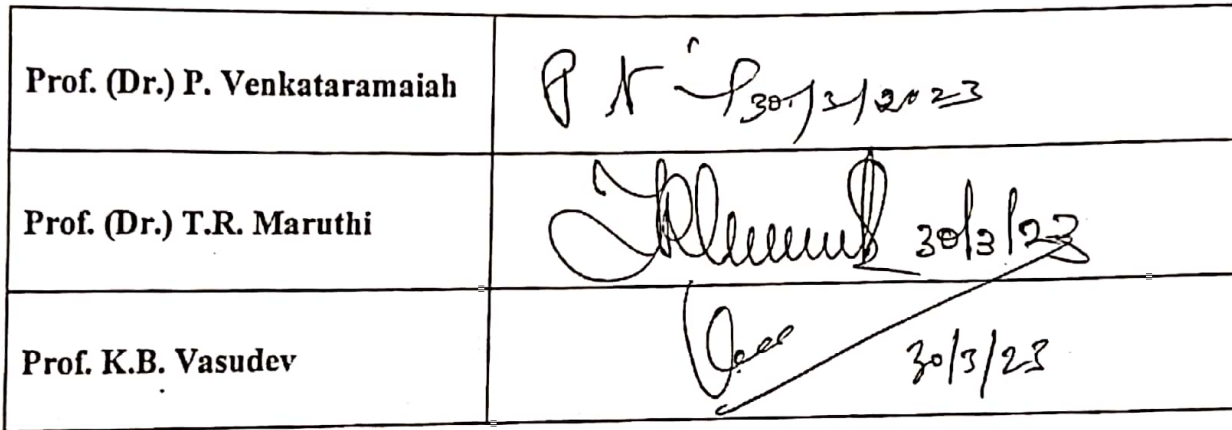 Prof. (Dr.) P. Venkataramaiah
30/3/2023
Prof. (Dr.) T.R. Maruthi
30/3/23
Prof. K.B. Vasudev
30/3/23